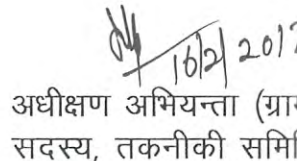 16/2/2017
अधीक्षण अभियन्ता (ग्राम
सदस्य, तकनीकी समिति